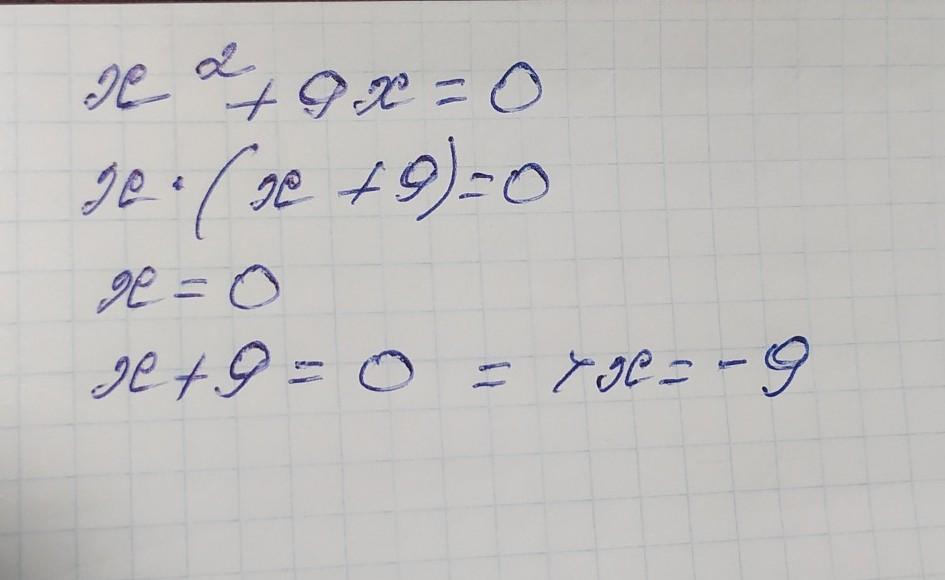 x² + 9x = 0
x · (x + 9) = 0
x = 0
x + 9 = 0 => x = -9